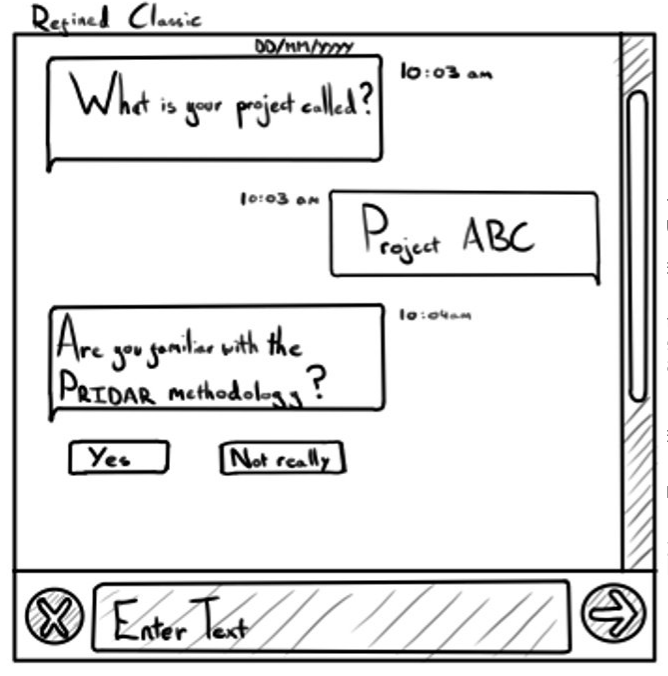 Refined Classic
DD/MM/YYYY
What is your project called?
10:03 am
10:03 am
Project ABC
Are you familiar with the
PRIDAR methodology?
10:04am
Yes
Not really
X
Enter Text